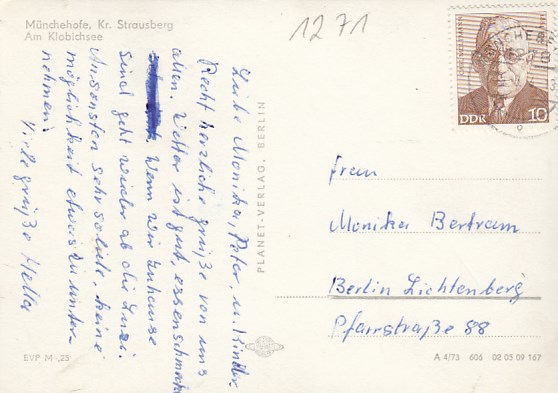 Münchehofe, Kr. Strausberg
Am Klobichsee
1271
Liebe Monika, Peter, u. Kinder.
Recht herzliche Grüße von uns
allen. Wetter ist gut, essen schmeckt
Wenn wir zuhause
sind geht wieder ab die
Ansonsten sehr solide, keine
möglichkeit etwas zu unter-
nehmen!
Viele grüße Hella
PLANET-VERLAG, BERLIN
DDR 10
Frau
Monika Bertram
Berlin Lichtenberg
Pfarrstraße 88
EVP M -.25
A 4/73 606 02 05 09 167